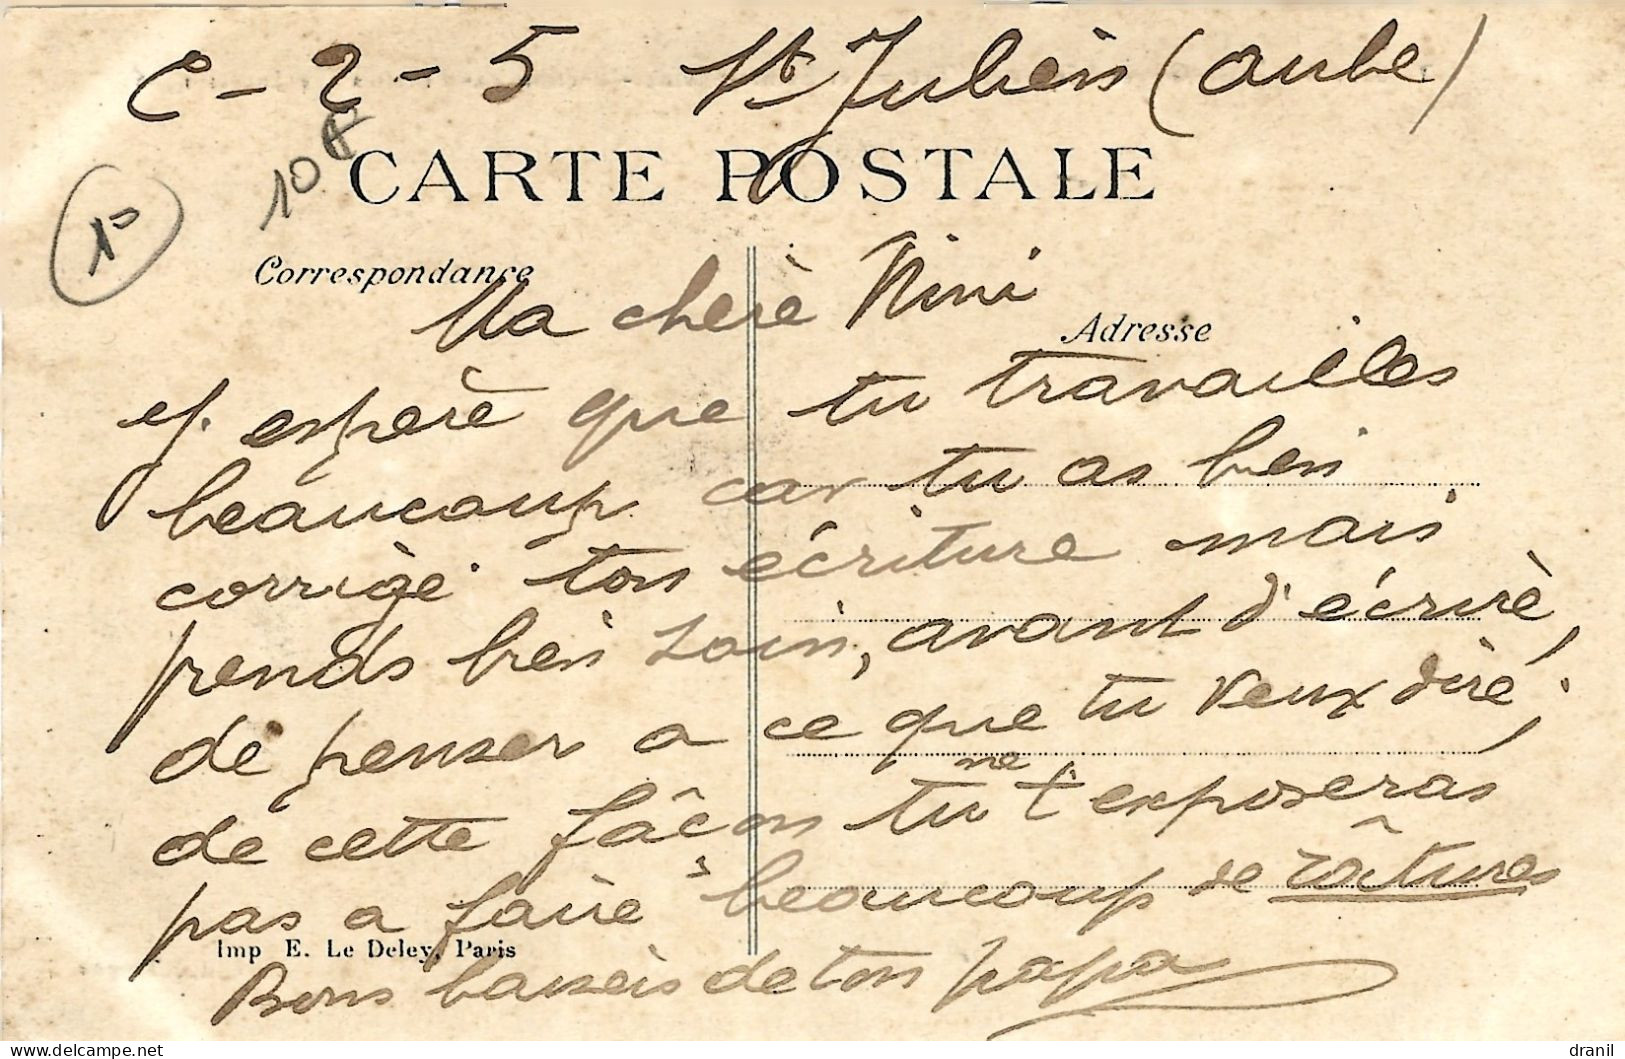 C - 2 - 5 St Julien (aube)
10 F
CARTE POSTALE
Correspondance
Ma chere Nini
Adresse
J'espere que tu travailles
beaucoup car tu as bien
corrigé ton écriture mais
prends bien soin, avant d'écrire,
de penser a ce que tu veux dire,
de cette façon tu ne t'exposeras
pas a faire beaucoup de ratures
Imp E. Le Deley, Paris
Bons baisers de ton papa
delcampe.net
dranil